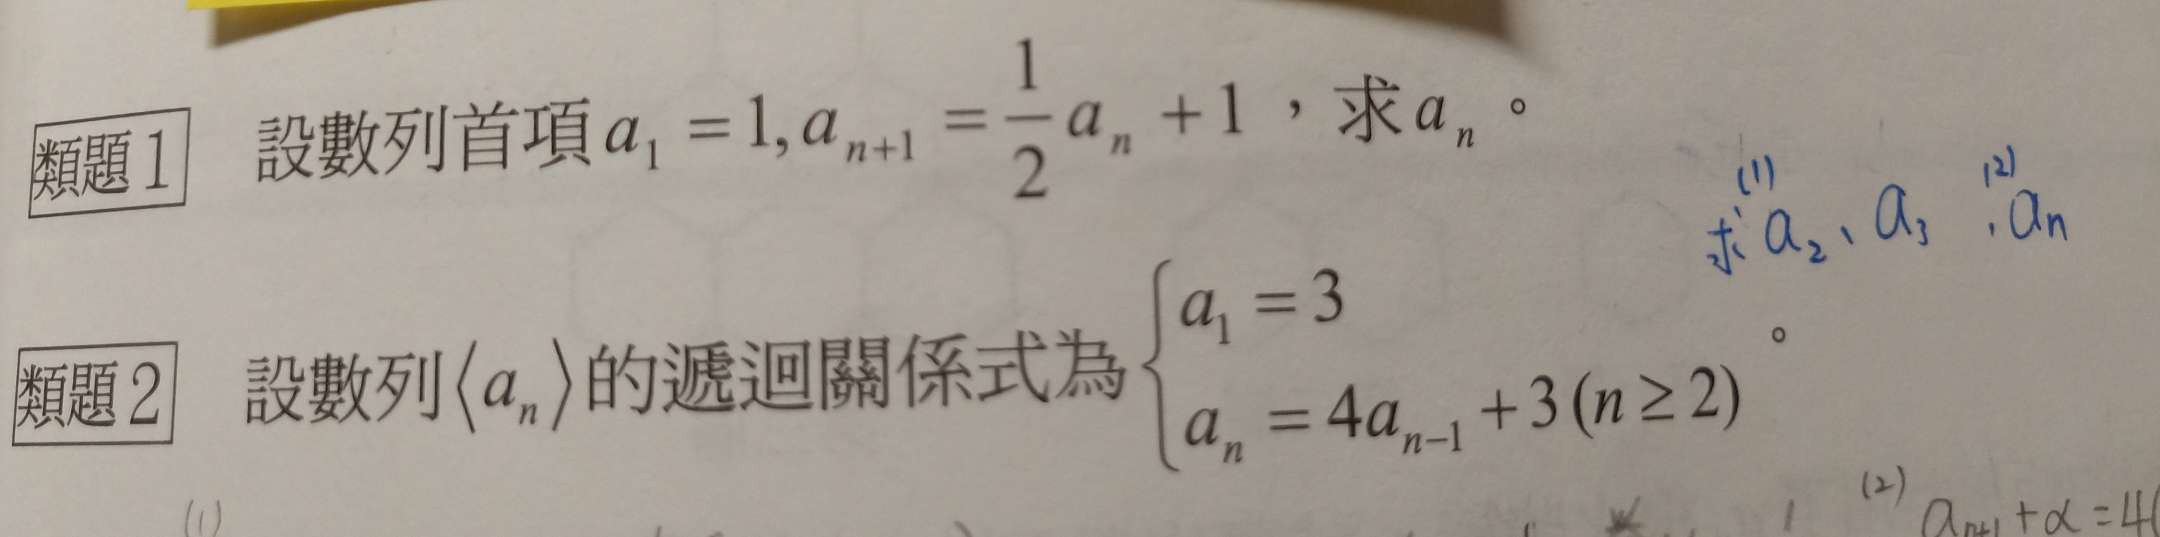 類題1 設數列首項 a₁ = 1, aₙ₊₁ = \frac{1}{2} aₙ + 1，求 aₙ。
(1) (2)
求 a₂、a₃、aₙ
類題2 設數列⟨aₙ⟩的遞迴關係式為 { a₁ = 3
aₙ = 4aₙ₋₁ + 3 (n ≥ 2) 。
(1) (2) aₙ₊₁ + α = 4(